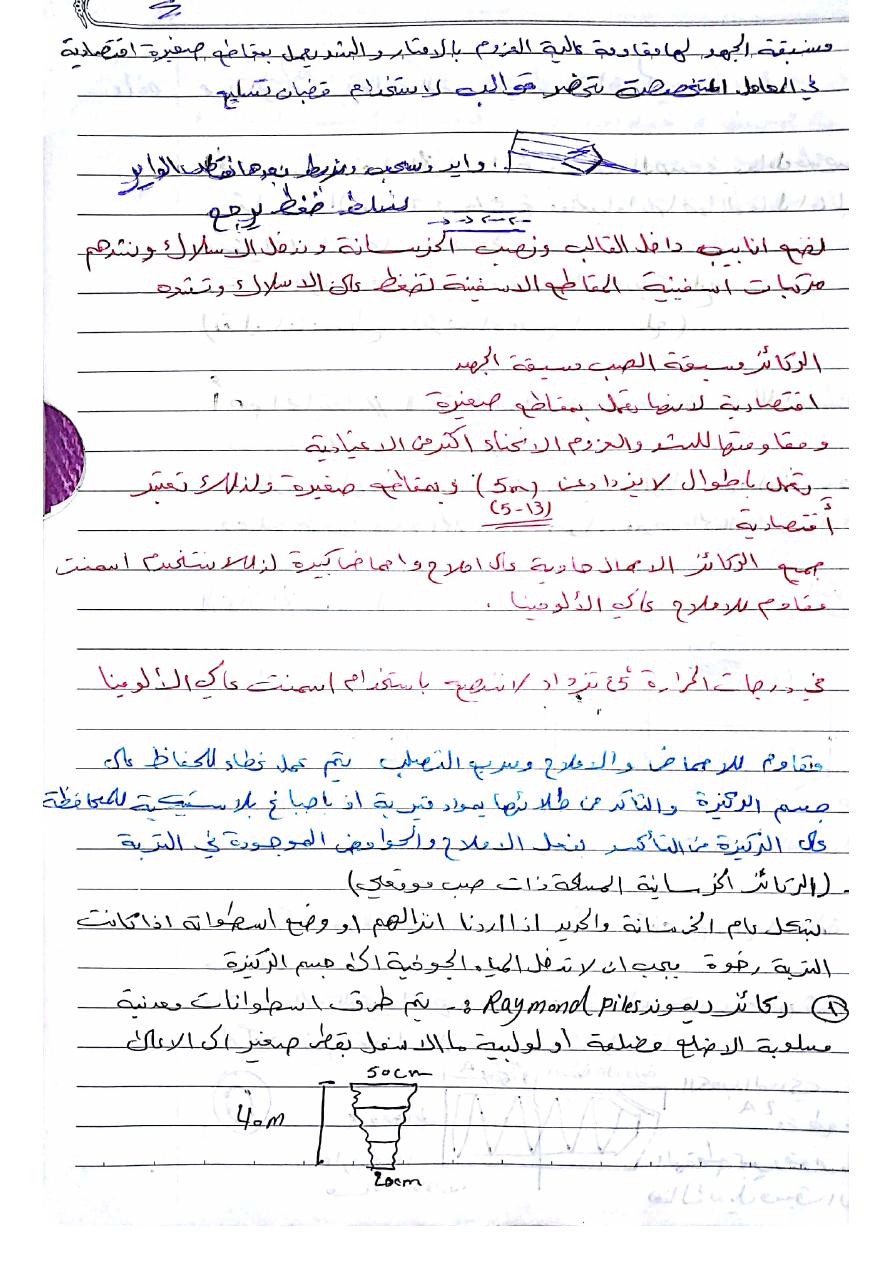 مسبقة الجهد لها مقاومة عالية العزوم بالامتار والشد يعمل بمقاطع صغيرة اقتصادية
في المعامل المتخصصة تحضر قوالب لاستخدام قضبان تسليح
واير وسحب ونربط بعدها نقطع الواير
نسلط ضغط يرجع
نضع انابيب داخل القالب ونصب الخرسانة وندخل الاسلاك ونشدهم
مركبات اسفينية المقاطع الاسفينة تضغط على الاسلاك وتشده
الركائز مسبقة الصب مسبقة الجهد
اقتصادية لانها تعمل بمقاطع صغيرة
ومقاومتها للشد والعزوم الانحناء اكثر من الاعتيادية
وتعمل باطوال لا يزداد عن (5m) وبمقاطع صغيرة ولذلك تعتبر
(5-13)
أقتصادية
جميع الركائز الاحمال حاوية على املاح واحماض كبيرة لذلك نستخدم اسمنت
مقاوم للاملاح عالي الألومينا .
في درجات الحرارة تزداد لا ننصح باستخدام اسمنت عالي الألومينا
مقاوم للاحماض والاملاح وسريع التصلب يتم عمل غطاء للحفاظ على
جسم الركيزة والتأكد من طلائها بمواد قيرية او باصباغ بلاستيكية للمحافظة
على الركيزة من التأكسد بفعل الاملاح والحوامض الموجودة في التربة
(الركائز الخرسانية المسلحة ذات صب موقعي) .
بشكل عام الخرسانة والحديد اذا اردنا انزالهم او وضع اسطوانة اذا كانت
التربة رخوة يجب ان لا تدخل المياه الجوفية الى جسم الركيزة
① ركائز ريموند Raymond piles :- يتم طرق اسطوانات معدنية
مسلوبة الاضلع مضلعة او لولبية من الاسفل بقطر صغير الى الاعلى
50cm
40m
20cm